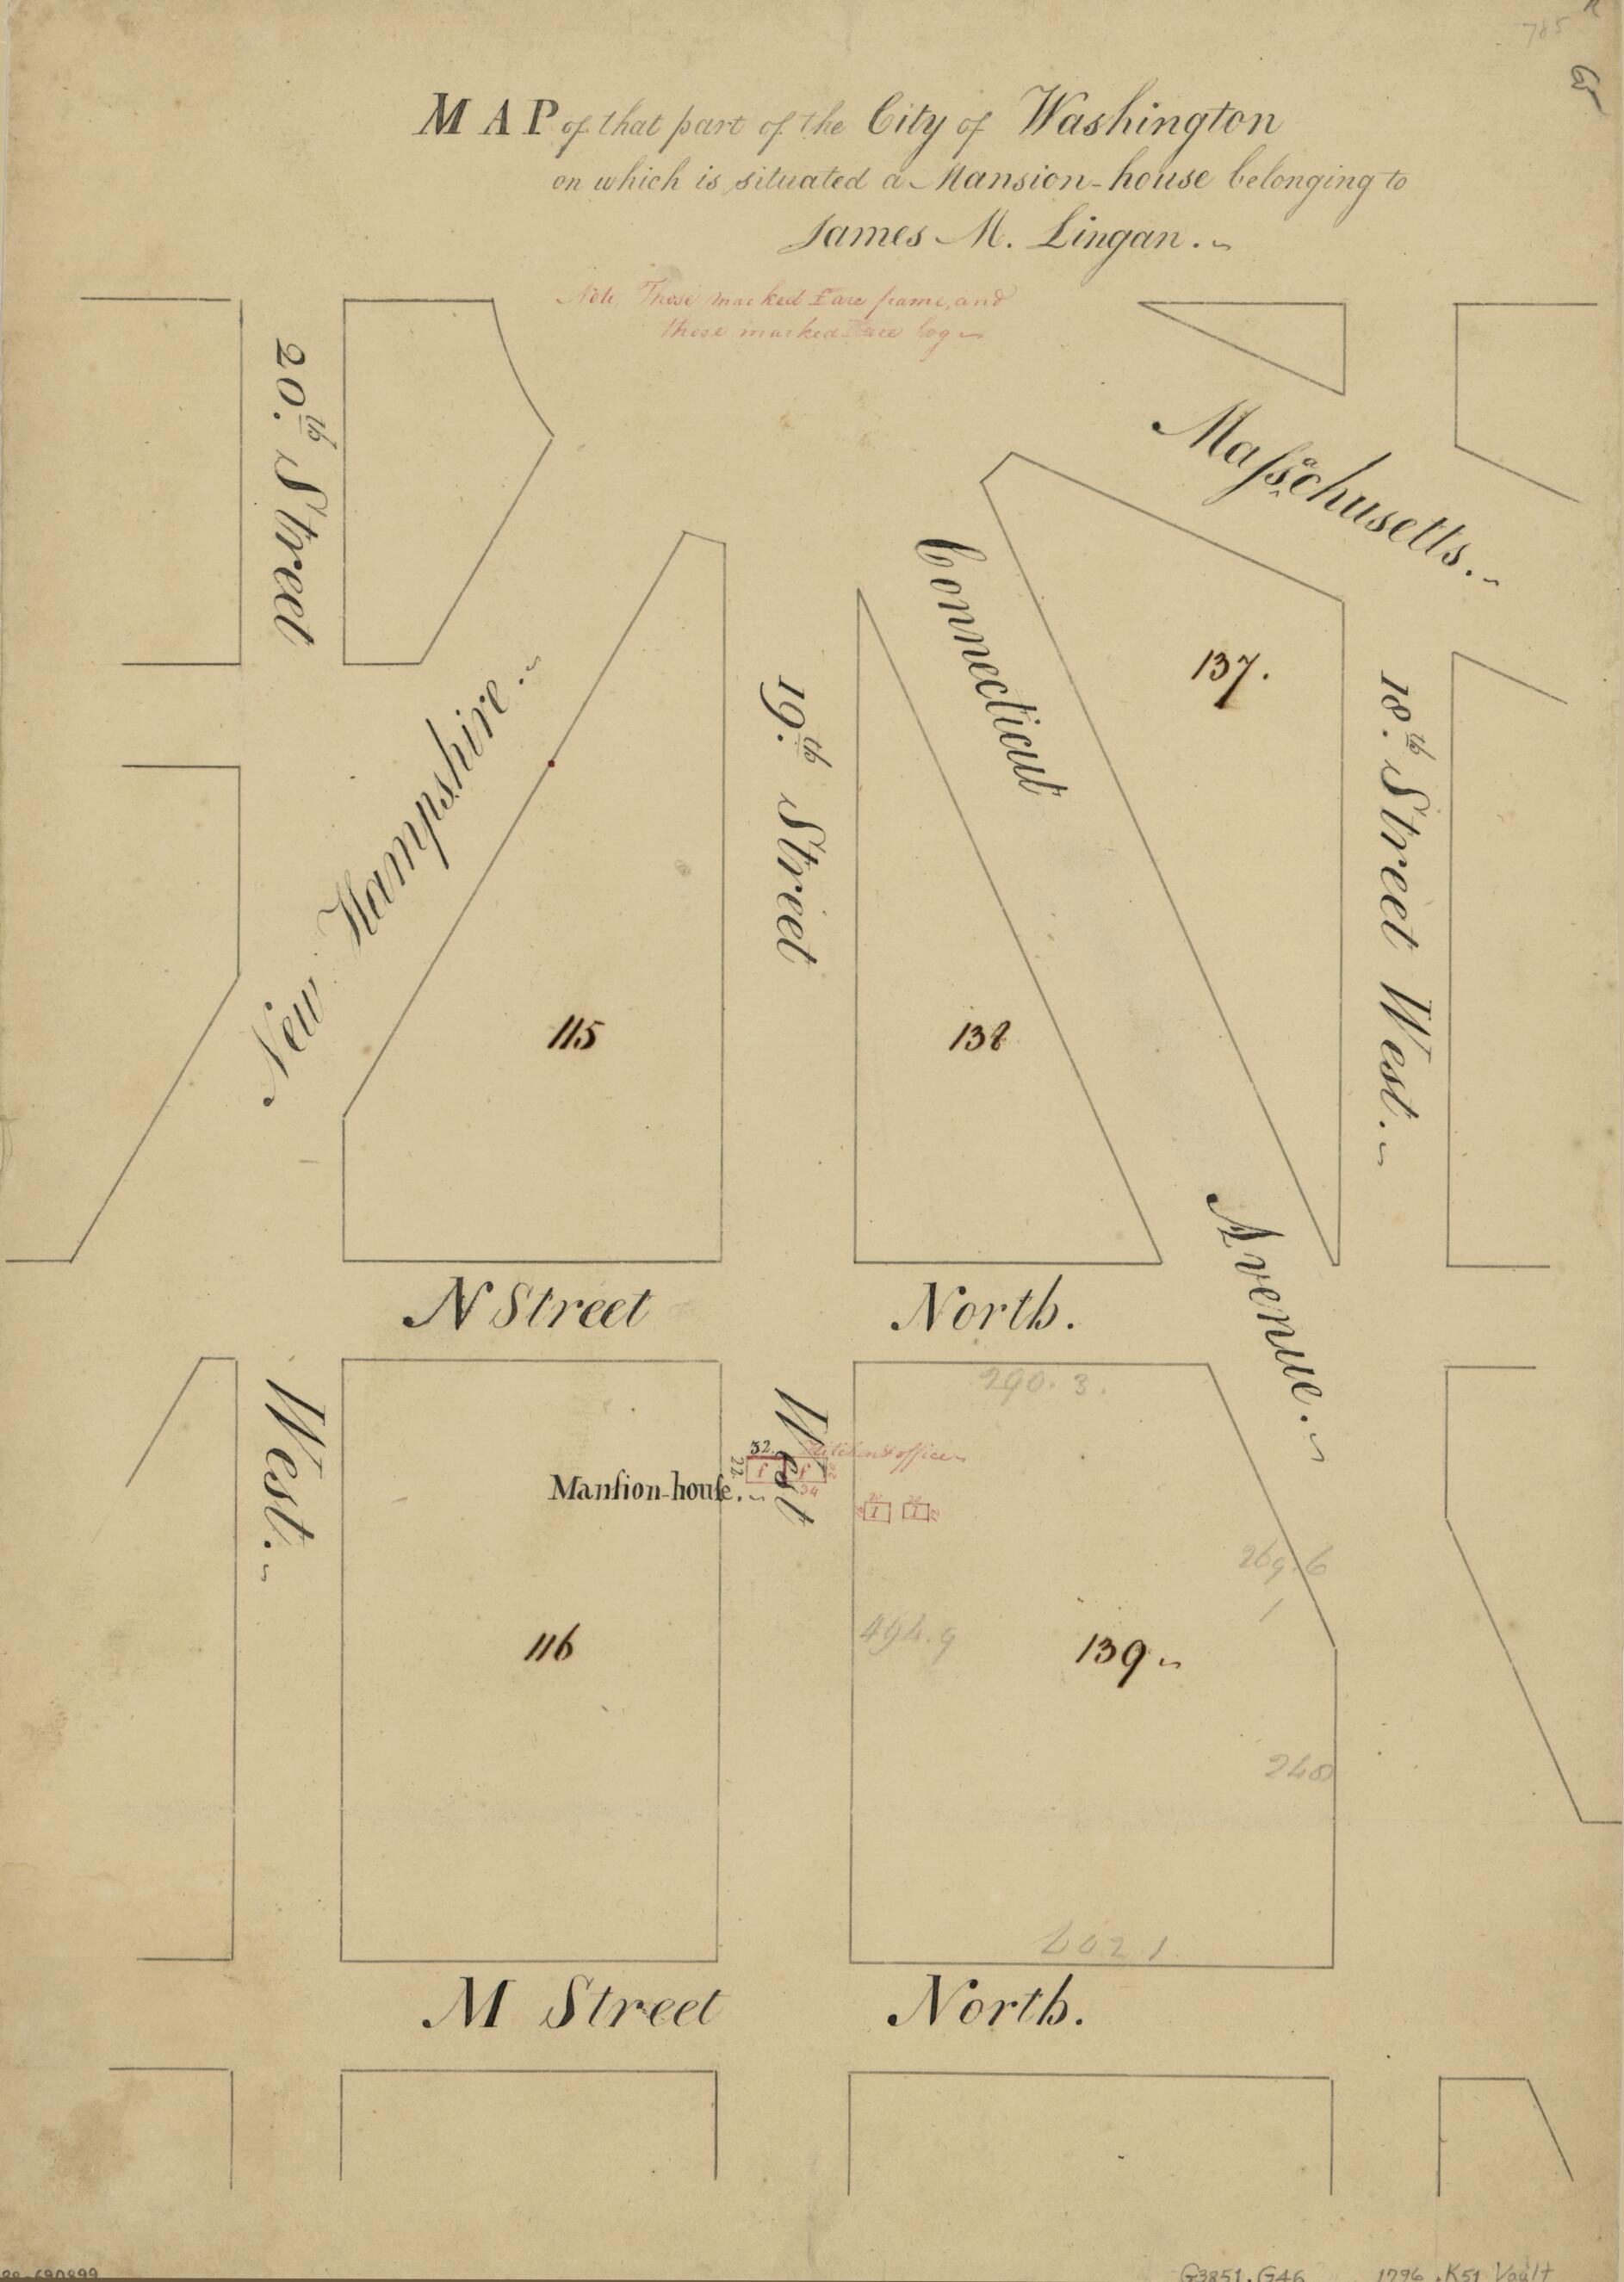 785
MAP of that part of the City of Washington
on which is situated a Mansion-house belonging to
James M. Lingan.
Note, Those marked F are frame, and
those marked are log
20.th Street
Massachusetts.
Connecticut
137.
New Hampshire.
19.th Street
18.th Street West.
115
138
Avenue.
N Street North.
West.
West
290.3.
32.
22
f f
34
Kitchen & office
Mansion-house.
1 1
269.6
1
494.9
116
139
248
402.1
M Street North.
88-690899
G3851.G46 1796 .K51 Vault